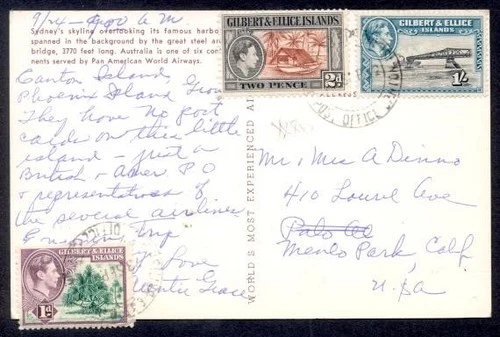 9/24 - 9:00 A M
Sydney's skyline overlooking its famous harbo
spanned in the background by the great steel ar
bridge, 3770 feet long. Australia is one of six con
nents served by Pan American World Airways.
Canton Island,
Phoenix Island Group
They have no post
cards on this little
island - just a
British & Amer P O
& representatives of
the several airlines
trip
Love
Grace
WORLD'S MOST EXPERIENCED AI
GILBERT & ELLICE ISLANDS
2d
TWO PENCE
GILBERT & ELLICE
ISLANDS
1/-
POST OFFICE
Mr, Mrs A Dinno
410 Laurel Ave
Palo Al
Menlo Park, Calif
U.S.A
GILBERT & ELLICE
ISLANDS
1d